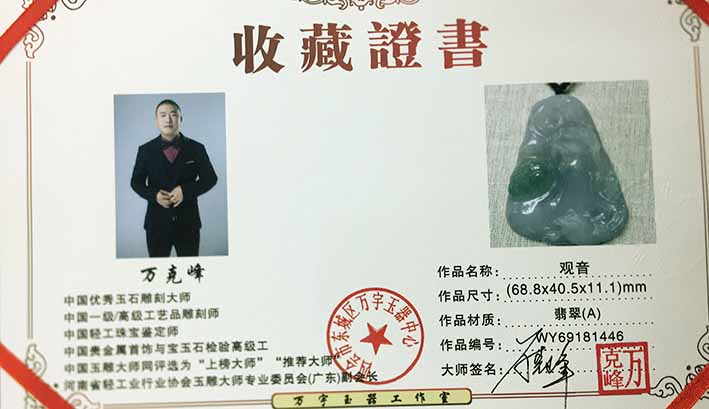 收藏證書
万克峰
中国优秀玉石雕刻大师
中国一级/高级工艺品雕刻师
中国轻工珠宝鉴定师
中国贵金属首饰与宝玉石检验高级工
中国玉雕大师网评选为“上榜大师”“推荐大师”
河南省轻工业行业协会玉雕大师专业委员会(广东)副会长
市东城区万字玉器中心
作品名称: 观音
作品尺寸: (68.8x40.5x11.1)mm
作品材质: 翡翠(A)
作品编号: WY69181446
大师签名:
万克峰
万字玉器工作室